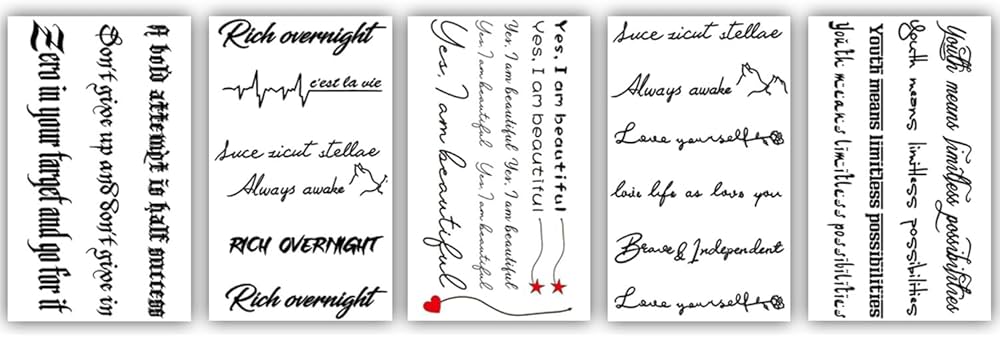 A bold attempt is half success
Don't give up and don't give in
Zero in your target and go for it
Rich overnight
c'est la vie
Suce zicut stellae
Always awake
RICH OVERNIGHT
Rich overnight
Yes, I am beautiful
Yes, I am beautiful
Yes, I am beautiful Yes, I am beautiful
Yes, I am beautiful Yes, I am beautiful
Yes, I am beautiful
Suce zicut stellae
Always awake
Love yourself
love life as love you
Brave & Independent
Love yourself
Youth means limitless possibilities
Youth means limitless possibilities
Youth means limitless possibilities
Youth means limitless possibilities